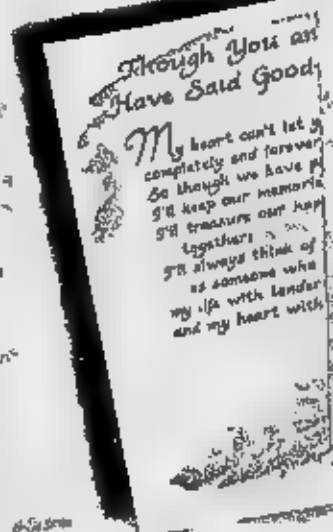 Though You an
Have Said Good
My heart can't let y
completely and forever
So though we have p
I'll keep our memorie
I'll treasure our hap
together;
I'll always think of
as someone who
my life with tender
and my heart with